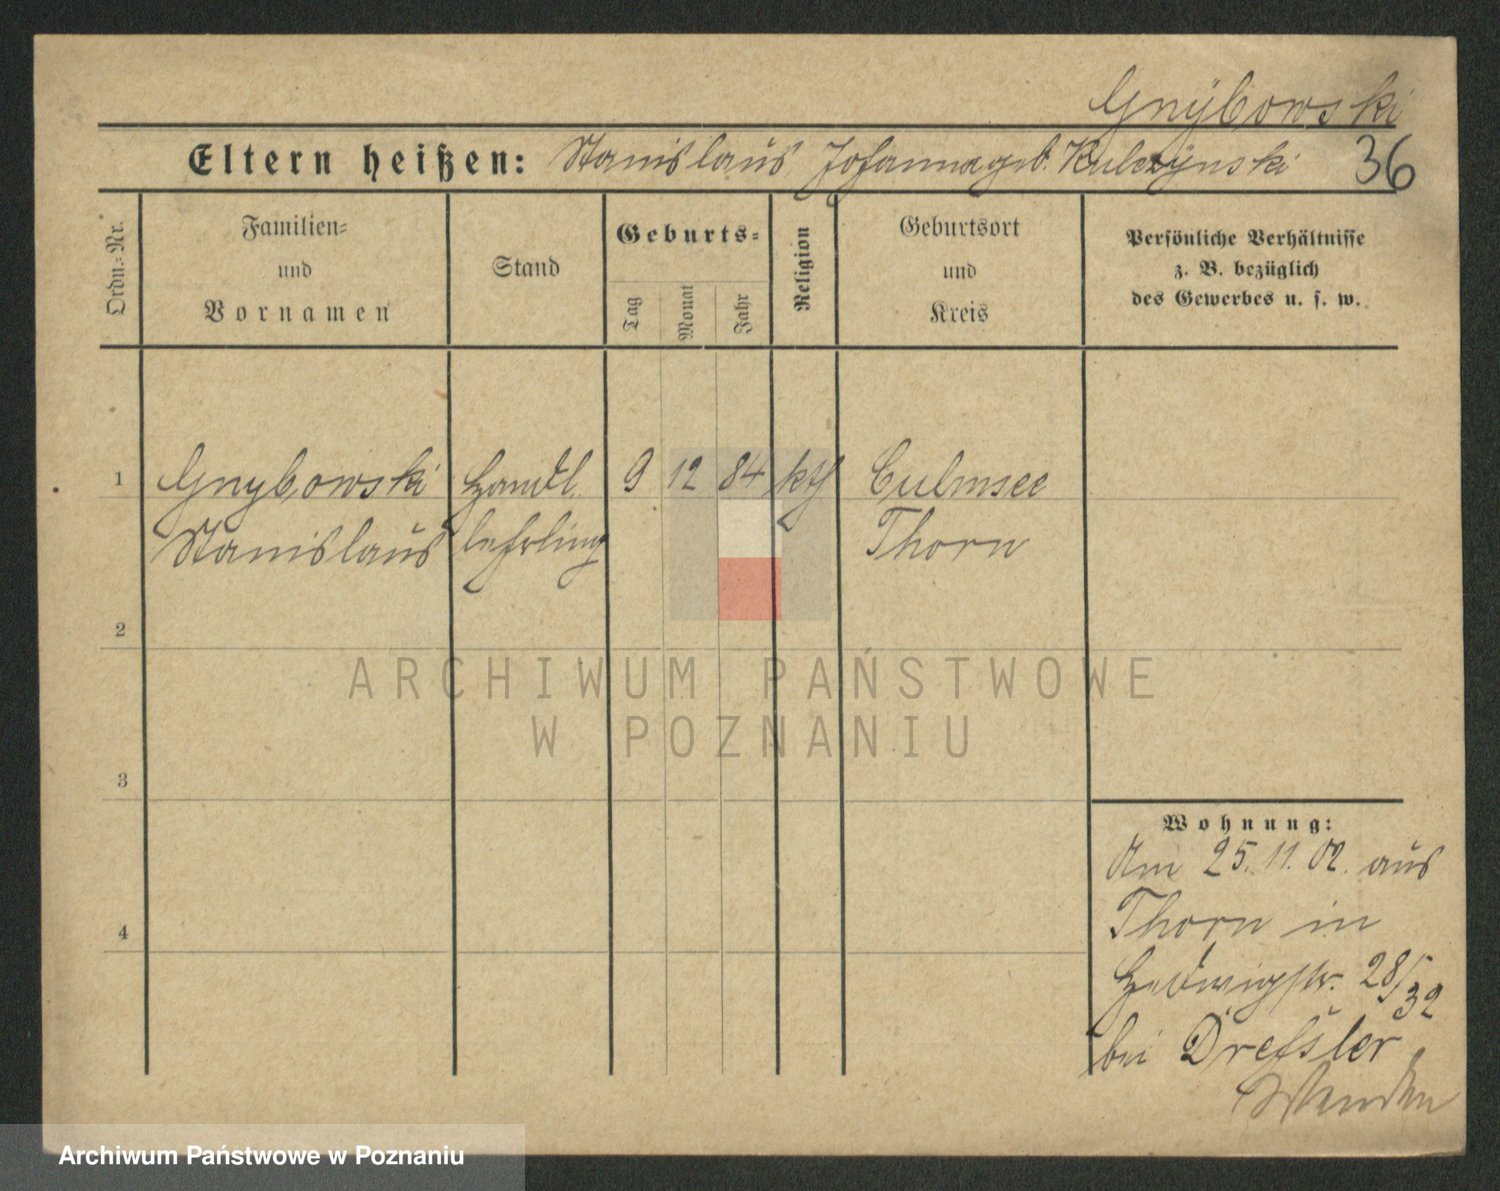 Gnÿbowski
Eltern heißen: Stanislaus, Johanna geb. Kulczÿnski 36
Ordn.-Nr.
Familien-
und
Vornamen
Stand
Geburts-
Tag
Monat
Jahr
Religion
Geburtsort
und
Kreis
Persönliche Verhältnisse
z. B. bezüglich
des Gewerbes u. s. w.
1 Gnybowski Handl. 9 12 84 kth Culmsee
Stanislaus lehrling Thorn
2
ARCHIWUM PAŃSTWOWE
W POZNANIU
3
4
Wohnung:
Am 25.11.02. aus
Thorn in
Hedwigstr. 28/32
bei Dreßler
Wenden
Archiwum Państwowe w Poznaniu